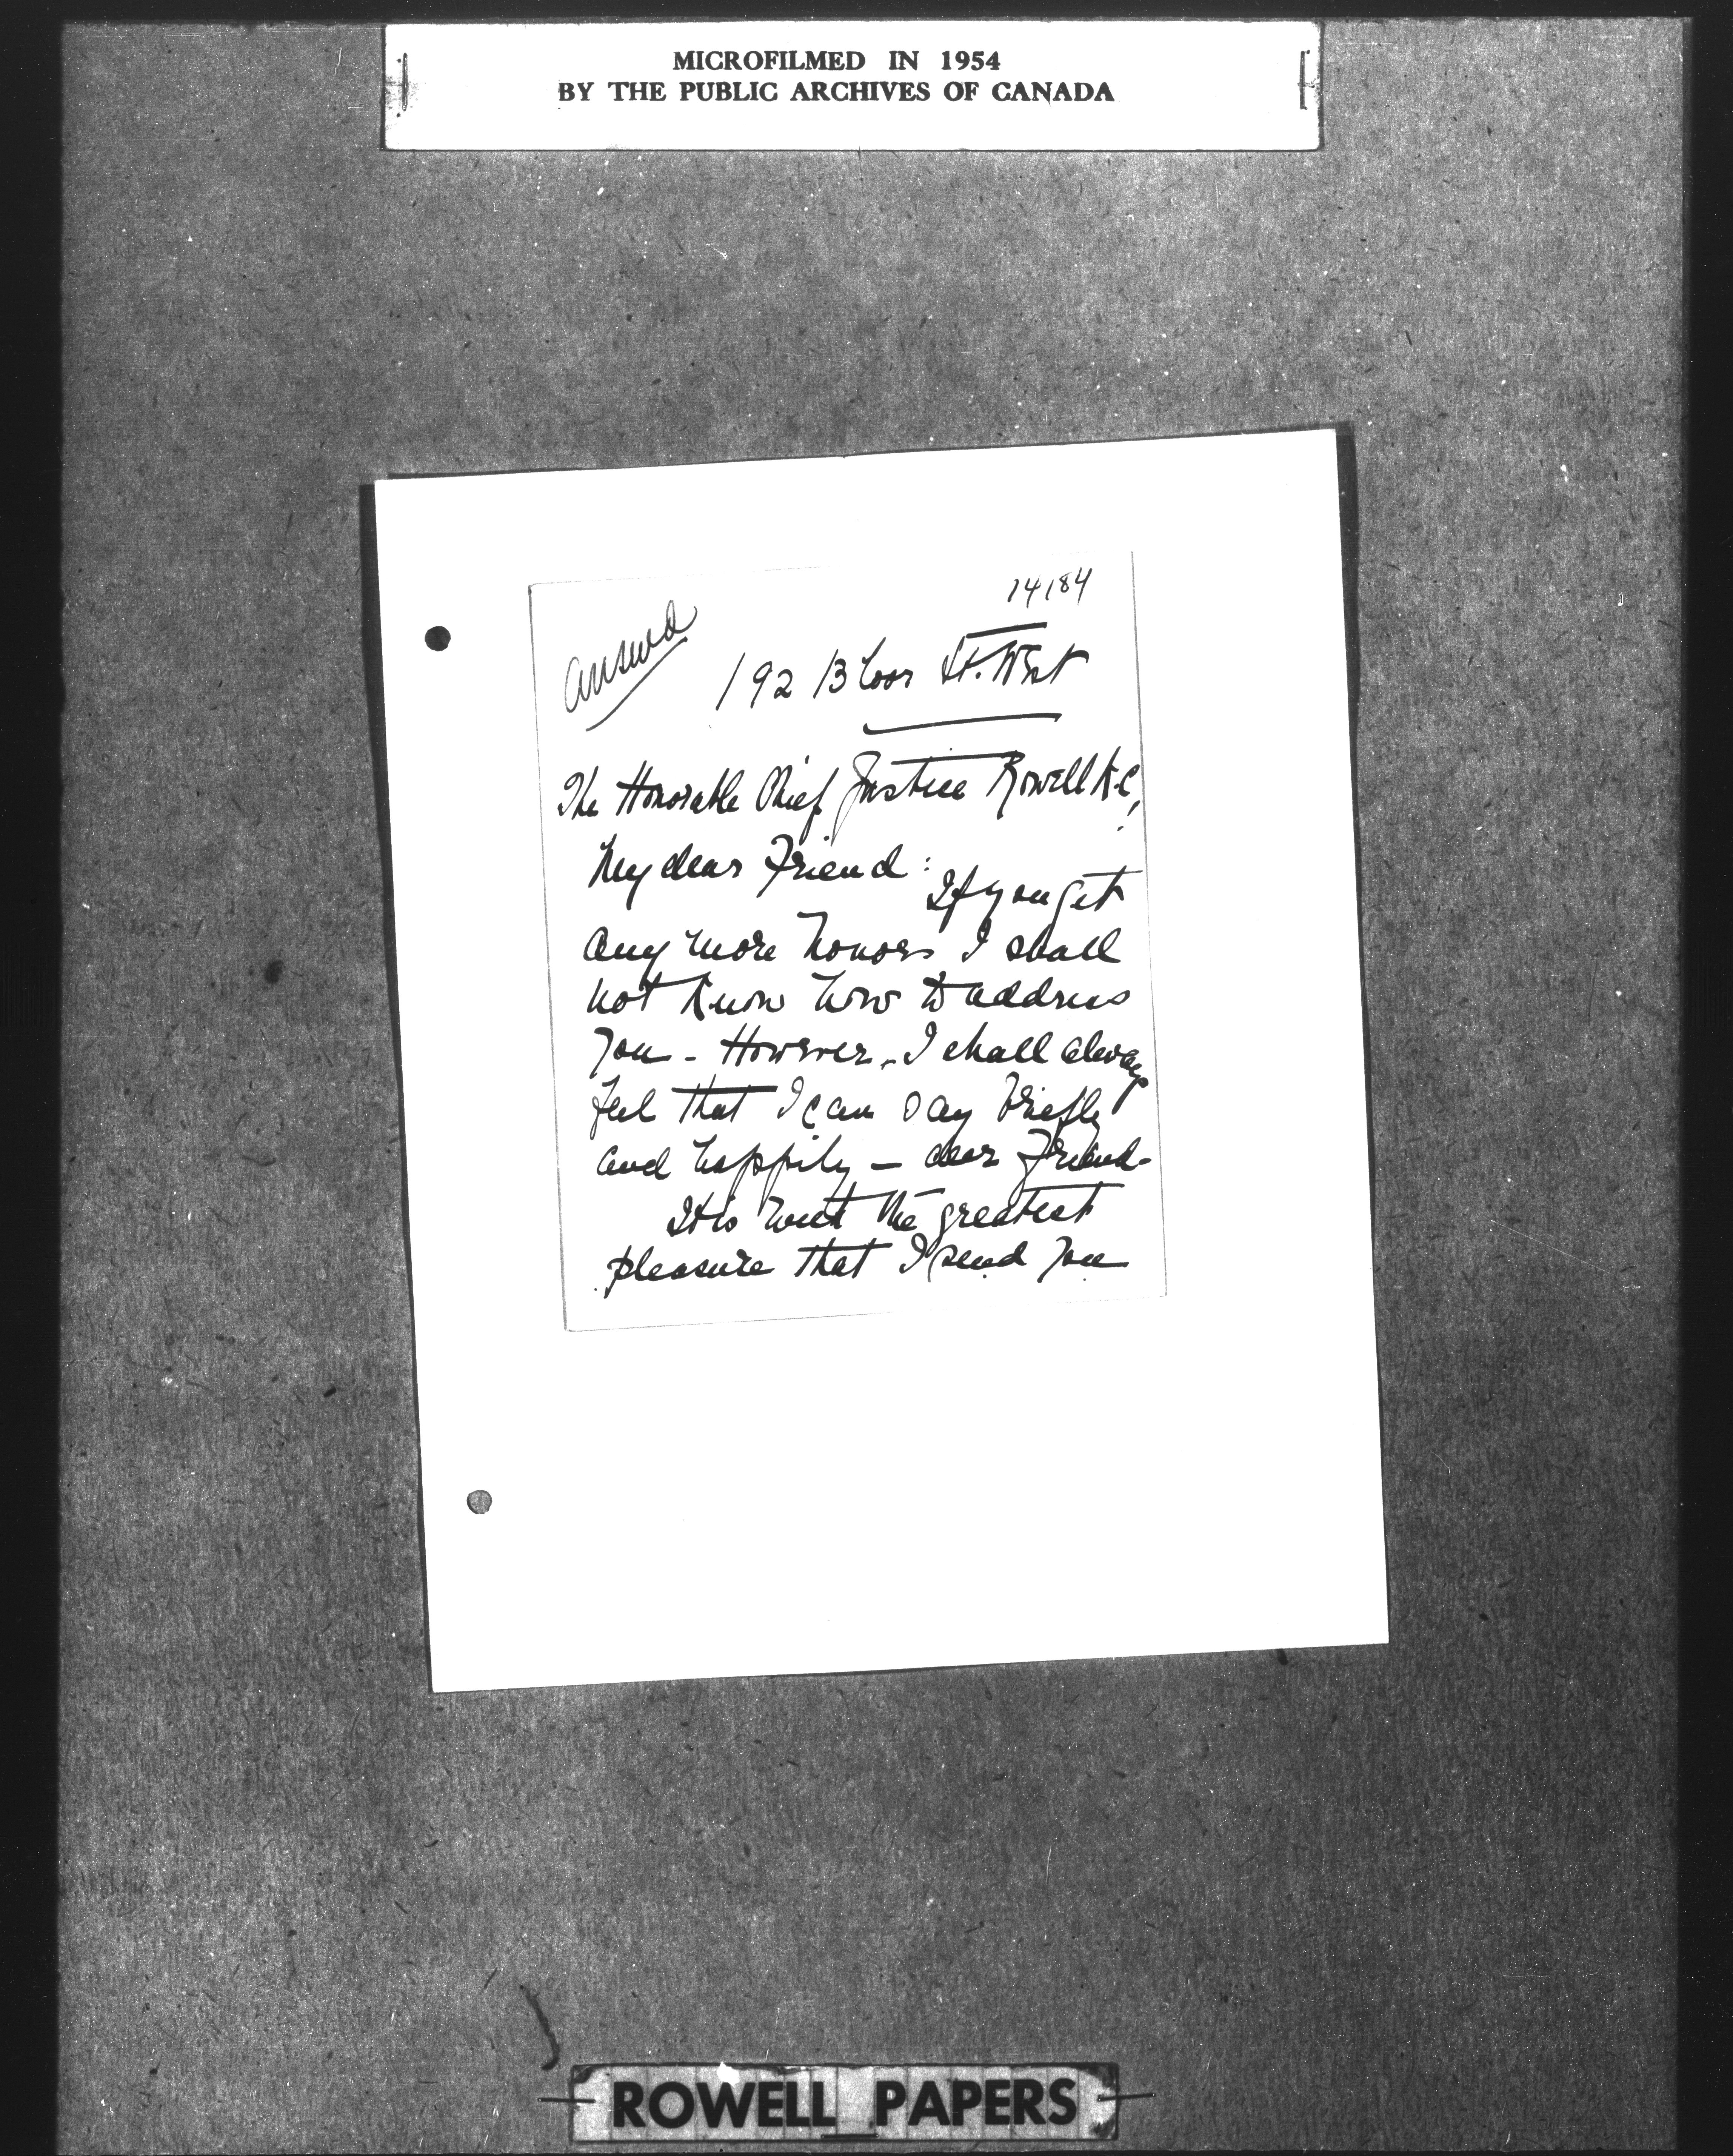 MICROFILMED IN 1954
BY THE PUBLIC ARCHIVES OF CANADA
14184
answd
192 Bloor St. West
The Honorable Chief Justice Rowell K.C,
My dear Friend:
If you get
any more honors I shall
not know how to address
you - However - I shall always
feel that I can say briefly
and happily - dear Friend -
It is with the greatest
pleasure that I send you
ROWELL PAPERS